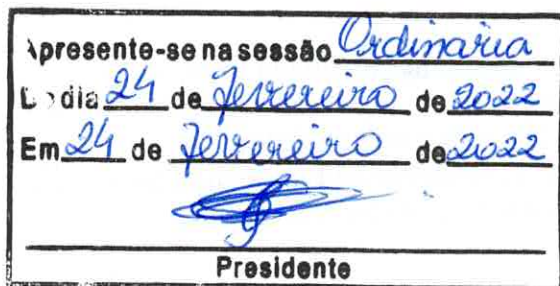 Apresente-se na sessão Ordinaria
Do dia 24 de fevereiro de 2022
Em 24 de fevereiro de 2022
Presidente